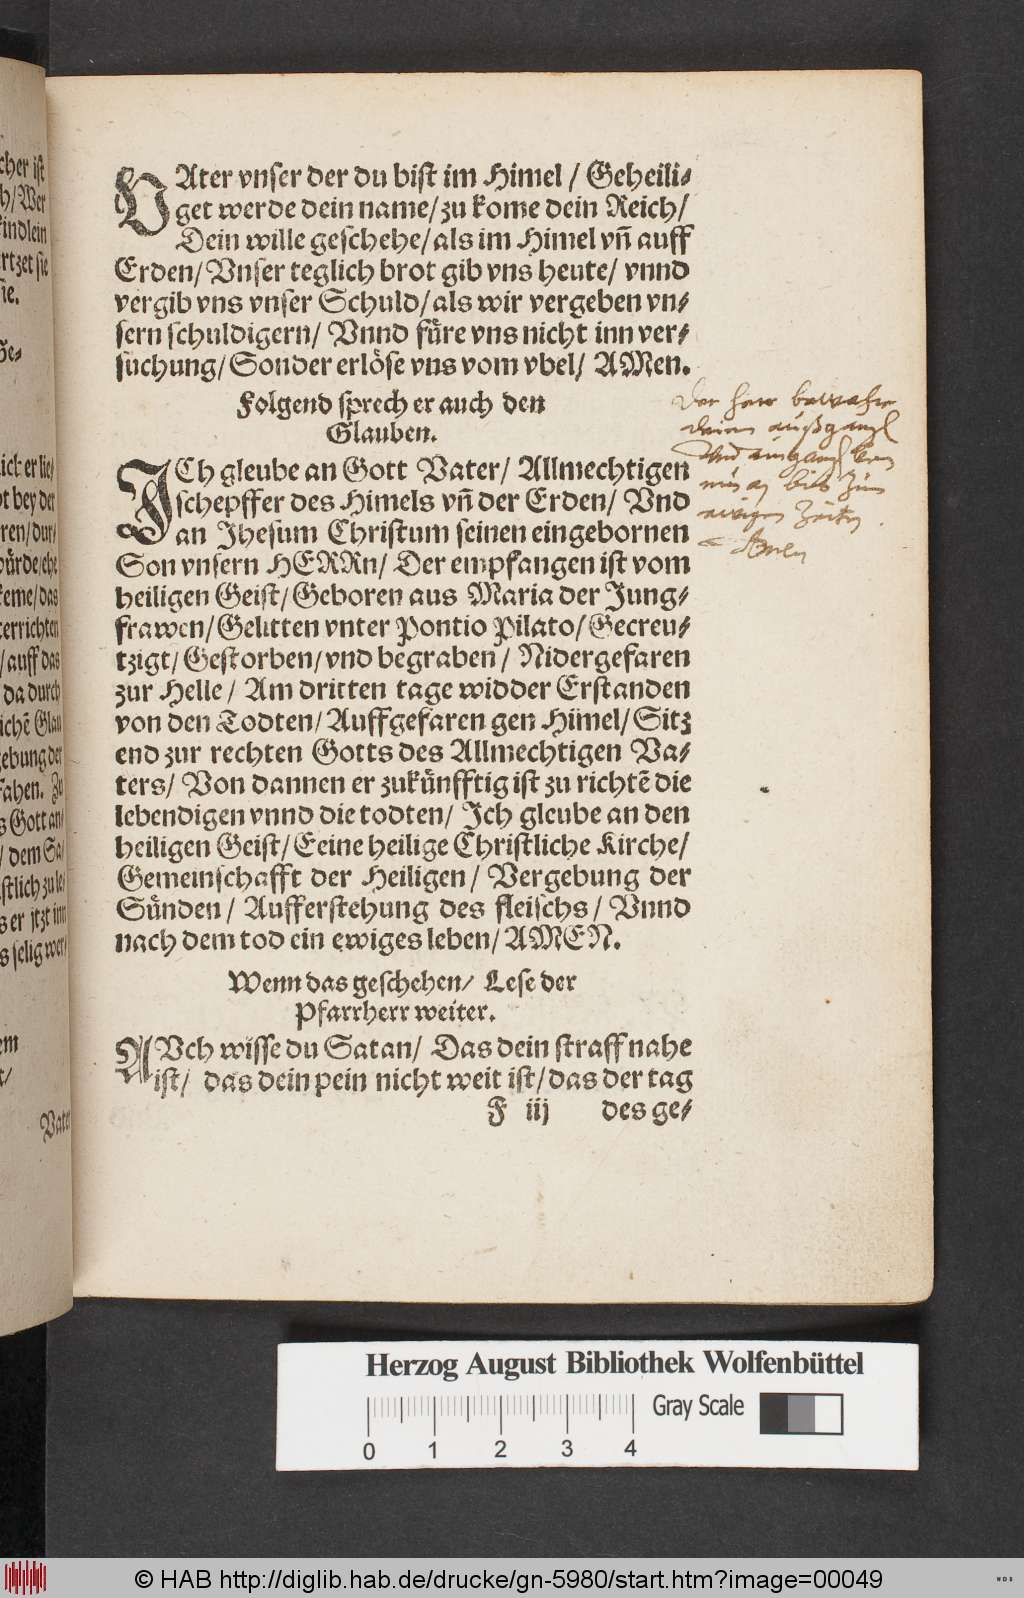 cher ist
h/ Wer
kindlein
rtzet sie
sie.
Ge⸗
lich er lie⸗
ot bey der
ren/ dur⸗
würde/ ehe
keme/ das
terrichten
/ auff das
da durch
ichē Glau
gebung der
fahen. Zu
s Gott an/
/ dem Sa⸗
stlich zu le⸗
s er jtzt inn
s selig wer⸗
em
t/
Vater
VAter vnser der du bist im Himel / Geheili⸗
get werde dein name/ zu kome dein Reich/
Dein wille geschehe/ als im Himel vñ auff
Erden/ Vnser teglich brot gib vns heute/ vnnd
vergib vns vnser Schuld/ als wir vergeben vn⸗
sern schuldigern/ Vnnd füre vns nicht inn ver⸗
suchung/ Sonder erlöse vns vom vbel/ AMen.
Folgend sprech er auch den
Glauben.
ICh gleube an Gott Vater/ Allmechtigen
schepffer des Himels vñ der Erden/ Vnd
an Jhesum Christum seinen eingebornen
Son vnsern HERRn/ Der empfangen ist vom
heiligen Geist/ Geboren aus Maria der Jung⸗
frawen/ Gelitten vnter Pontio Pilato/ Gecreu⸗
tzigt/ Gestorben/ vnd begraben/ Nidergefaren
zur Helle/ Am dritten tage widder Erstanden
von den Todten/ Auffgefaren gen Himel/ Sitz
end zur rechten Gotts des Allmechtigen Va⸗
ters/ Von dannen er zukünfftig ist zu richtē die
lebendigen vnnd die todten/ Ich gleube an den
heiligen Geist/ Eeine heilige Christliche Kirche/
Gemeinschafft der Heiligen/ Vergebung der
Sünden/ Aufferstehung des fleischs/ Vnnd
nach dem tod ein ewiges leben/ AMEN.
Wenn das geschehen/ Lese der
Pfarrherr weiter.
AVch wisse du Satan/ Das dein straff nahe
ist/ das dein pein nicht weit ist/ das der tag
F iij des ge⸗
Der herr bewahre
deinen außgang
Vnd eingang von
nun an bis zun
ewigen Zeiten
Amen
Herzog August Bibliothek Wolfenbüttel
Gray Scale
0 1 2 3 4
© HAB http://diglib.hab.de/drucke/gn-5980/start.htm?image=00049
WDB